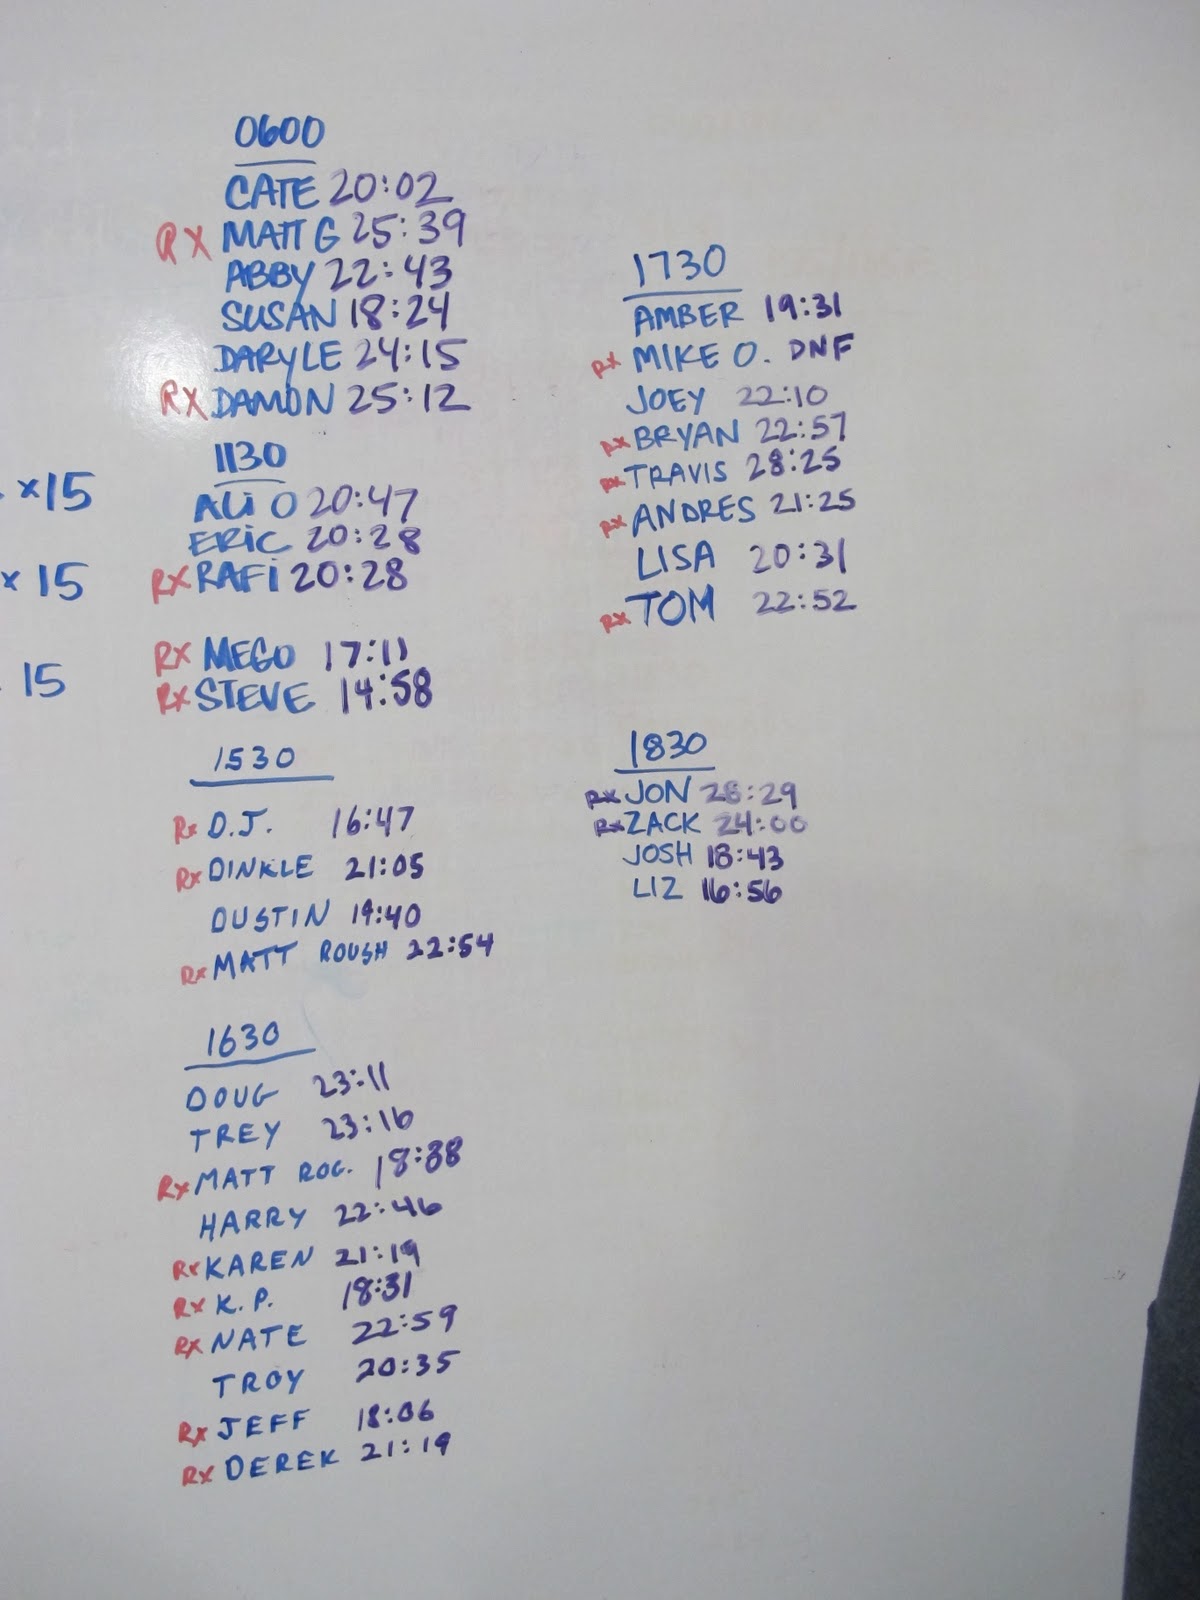 0600
CATE 20:02
RX MATT G 25:39
ABBY 22:43
SUSAN 18:24
DARYLE 24:15
RX DAMON 25:12
1130
x15
ALI O 20:47
ERIC 20:28
x 15
RX RAFI 20:28
RX MEGO 17:11
15
RX STEVE 14:58
1530
RX D.J. 16:47
RX DINKLE 21:05
DUSTIN 19:40
RX MATT ROUSH 22:54
1630
DOUG 23:11
TREY 23:16
RX MATT ROG. 18:38
HARRY 22:46
RX KAREN 21:19
RX K.P. 18:31
RX NATE 22:59
TROY 20:35
RX JEFF 18:06
RX DEREK 21:19
1730
AMBER 19:31
RX MIKE O. DNF
JOEY 22:10
RX BRYAN 22:57
RX TRAVIS 28:25
RX ANDRES 21:25
LISA 20:31
RX TOM 22:52
1830
RX JON 28:29
RX ZACK 24:00
JOSH 18:43
LIZ 16:56